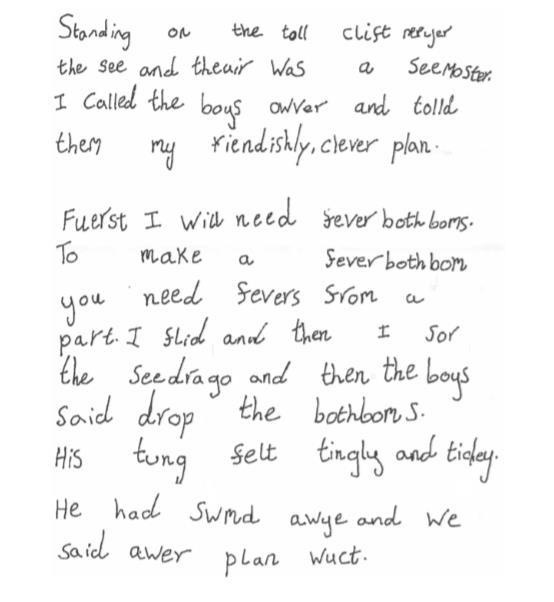 Standing on the toll clift neryer
the see and theair was a SeeMoster.
I Called the boys owver and tolld
them my fiendishly, clever plan.
Fuerst I will need fever both boms.
To make a feverbothbom
you need fevers from a
part. I flid and then I sor
the Seedrago and then the boys
Said drop the bothboms.
His tung felt tingly and tickey.
He had Swmd awye and we
said awer plan wuct.